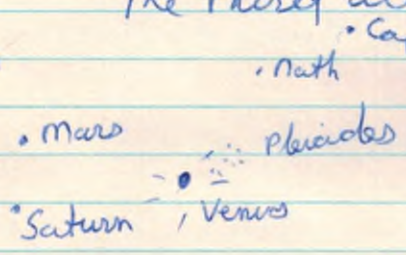 The
Ca
Math
Mars
Pleiades
Saturn
Venus